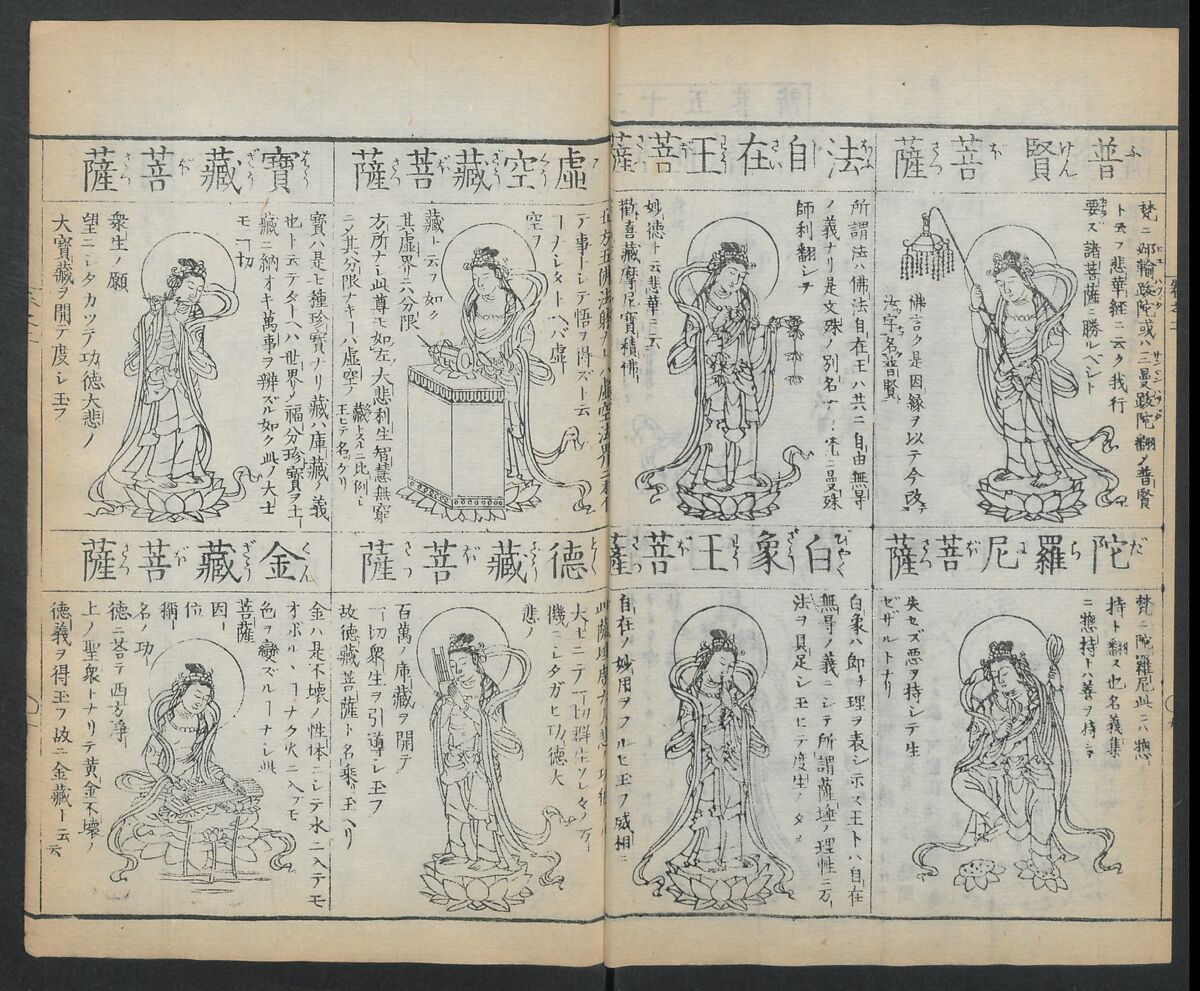 普賢菩薩
ふげんぼさつ
梵ニ邲輸跋陀或ハ三曼跋陀翻ノ普賢
ト云フ悲華経ニ云ク我行
要ズ諸菩薩ニ勝ルベシト
佛言ク是因縁ヲ以テ今改テ
汝字名普賢
法自在王菩薩
所謂法ハ佛法自在王ハ共ニ自由無㝵
ノ義ナリ是文殊ノ別名ナ
梵ニ曼殊
師利翻シテ
妙德ト云悲華ニ云
歡喜藏摩尼寶積佛
陀羅尼菩薩
だらにぼさつ
梵ニ陀羅尼此ニハ惣
持ト翻ス也名義集
ニ惣持トハ善ヲ持シテ
失セズ悪ヲ持シテ生
ゼザルトナリ
白象王菩薩
白象ハ即チ理ヲ表シ示ス王トハ自在
無㝵ノ義ニシテ所謂薩埵ノ理性ニ万
法ヲ具足シ玉ヒテ度生ノタメ
自在ノ妙用ヲフルヒ玉フ威相ニ
虛空藏菩薩
テ事トシテ悟ヲ得ズト云
コナシタトヘバ虛
空ヲ
藏ト云フ如ク
其虛界ニハ分限
方所ナシ此尊モ如左大悲利生智慧無窮
ニメ其分限ナキコハ虛空ノ
藏トスルニ比例シ
玉ヒテ名ヅクリ
寶藏菩薩
寶ハ是七種珍寶ナリ藏ハ庫藏ノ義
也ト云テタトヘハ世界ノ福分珍寶ヲ土
藏ニ納オキ萬事ヲ辨ズル如ク此ノ大士
モ一切
衆生ノ願
望ニシタカツテ功德大悲ノ
大寶藏ヲ開テ度シ玉フ
德藏菩薩
大士ニテ一切群生ソレ々ノ万
機ニシタガヒ功德大
悲ノ
百萬ノ庫藏ヲ開テ
一切衆生ヲ引導シ玉フ
故德藏菩薩ト名乘リ玉ヘリ
金藏菩薩
金ハ是不壞ノ性体ニシテ水ニ入テモ
オボルヽコナク火ニ入テモ
色ヲ變ズルコナシ此
菩薩
因
位
稱
名ノ功
德ニ荅テ西方淨
上ノ聖衆トナリテ黄金不壞ノ
德義ヲ得玉フ故ニ金藏ト云云